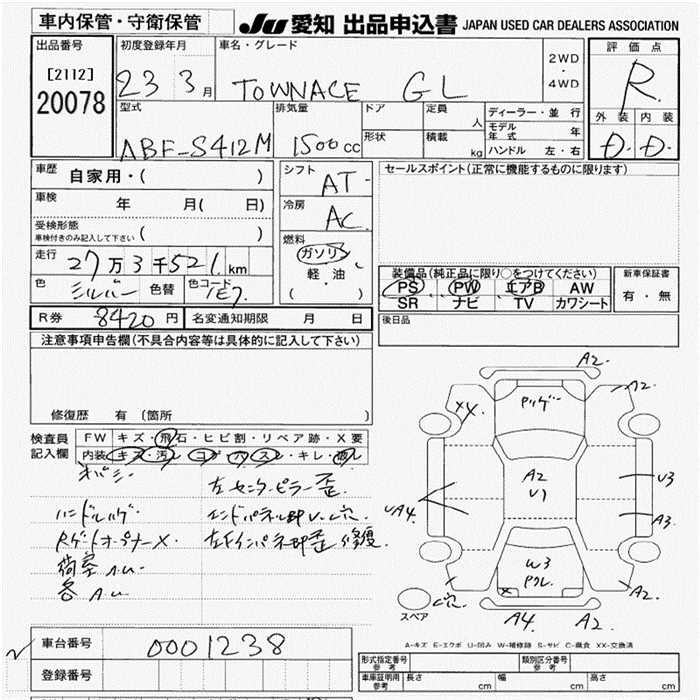 車内保管・守衛保管
JU 愛知 出品申込書 JAPAN USED CAR DEALERS ASSOCIATION
出品番号
[2112]
20078
初度登録年月
23 3月
車名・グレード
TOWNACE GL
2WD
・
4WD
評価点
R
外装 内装
D D
型式
ABF-S412M
排気量
1500cc
ドア
定員 人
形状
積載 kg
ディーラー・並行
モデル年式 年
ハンドル 左・右
車歴
自家用・( )
車検 年 月( 日)
受検形態
車検付きのみ記入して下さい ( )
走行 27万3千521km
色 シルバー 色替 色コード 1E7
シフト AT
冷房 AC
燃料
ガソリン
軽・油
( )
セールスポイント(正常に機能するものに限ります)
装備品(純正品に限り○をつけてください)
PS PW エアB AW
SR ナビ TV カワシート
新車保証書
有・無
後日品
R券 8420円 名変通知期限 月 日
注意事項申告欄(不具合内容等は具体的に記入して下さい)
修復歴 有(箇所 )
検査員
記入欄
FW キズ・飛石・ヒビ割・リペア跡・X要
内装 キズ・汚レ・コゲ・ハズレ・キレ・破レ
左センターピラー歪
ハンドルハゲ
Rゲートオープナー×
荷室AU
各AU
A2
A2
XX
A2
U1
U3
A3
UA4
W3
A2
A4
A2
スペア
A-キズ E-エクボ U-凹み W-補修跡 S-サビ C-腐食 XX-交換済
車台番号 0001238
登録番号
形式指定番号 参考
類別区分番号 参考
車庫証明用 参考 長さ cm 幅 cm 高さ cm